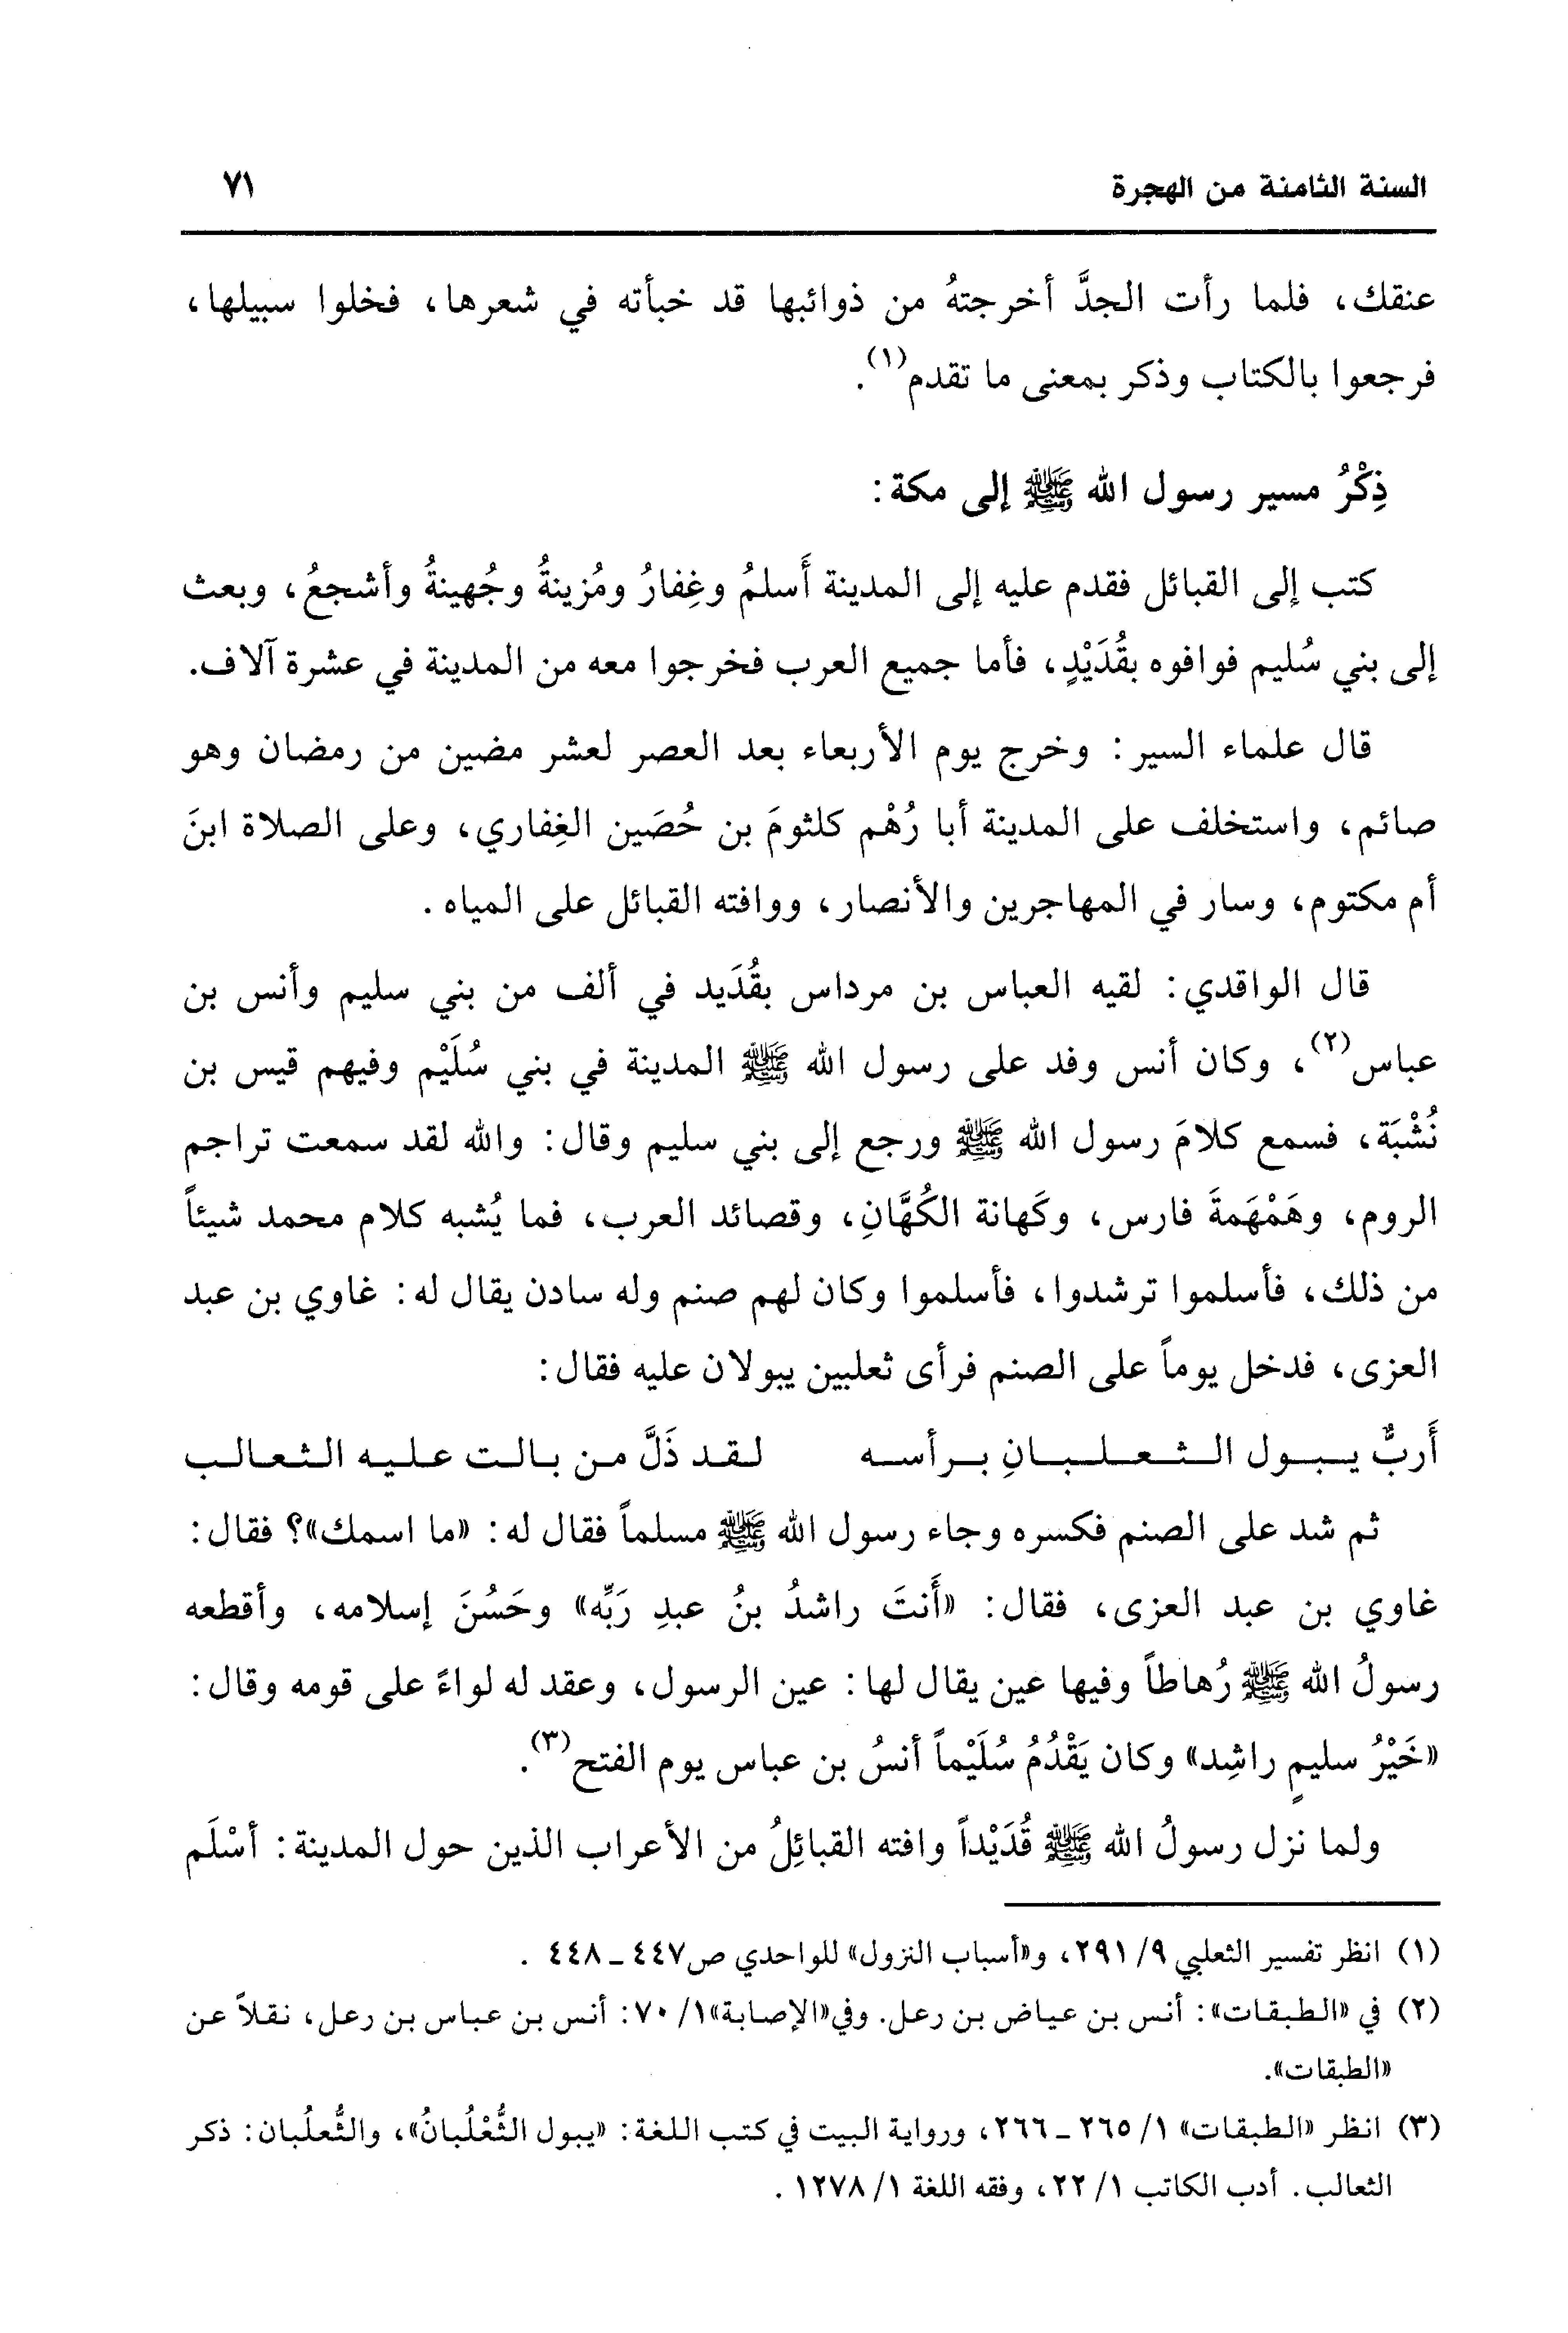 السنة الثامنة من الهجرة ٧١
عنقك، فلما رأت الجدَّ أخرجتهُ من ذوائبها قد خبأته في شعرها، فخلوا سبيلها،
فرجعوا بالكتاب وذكر بمعنى ما تقدم(١).
ذِكْرُ مسير رسول الله ﷺ إلى مكة:
كتب إلى القبائل فقدم عليه إلى المدينة أَسلمُ وغِفارُ ومُزينةُ وجُهينةُ وأشجعُ، وبعث
إلى بني سُليم فوافوه بقُدَيْدٍ، فأما جميع العرب فخرجوا معه من المدينة في عشرة آلاف.
قال علماء السير: وخرج يوم الأربعاء بعد العصر لعشر مضين من رمضان وهو
صائم، واستخلف على المدينة أبا رُهْم كلثومَ بن حُصَين الغِفاري، وعلى الصلاة ابنَ
أم مكتوم، وسار في المهاجرين والأنصار، ووافته القبائل على المياه.
قال الواقدي: لقيه العباس بن مرداس بقُدَيد في ألف من بني سليم وأنس بن
عباس(٢)، وكان أنس وفد على رسول الله ﷺ المدينة في بني سُلَيْم وفيهم قيس بن
نُشْبَة، فسمع كلامَ رسول الله ﷺ ورجع إلى بني سليم وقال: والله لقد سمعت تراجم
الروم، وهَمْهَمةَ فارس، وكَهانة الكُهَّانِ، وقصائد العرب، فما يُشبه كلام محمد شيئاً
من ذلك، فأسلموا ترشدوا، فأسلموا وكان لهم صنم وله سادن يقال له: غاوي بن عبد
العزى، فدخل يوماً على الصنم فرأى ثعلبين يبولان عليه فقال:
أَربٌّ يبول الثعلبانِ برأسه لقد ذَلَّ من بالت عليه الثعالب
ثم شد على الصنم فكسره وجاء رسول الله ﷺ مسلماً فقال له: «ما اسمك»؟ فقال:
غاوي بن عبد العزى، فقال: «أَنتَ راشدُ بنُ عبدِ رَبِّه» وحَسُنَ إسلامه، وأقطعه
رسولُ الله ﷺ رُهاطاً وفيها عين يقال لها: عين الرسول، وعقد له لواءً على قومه وقال:
«خَيْرُ سليمٍ راشِد» وكان يَقْدُمُ سُلَيْماً أنسُ بن عباس يوم الفتح(٣).
ولما نزل رسولُ الله ﷺ قُدَيْداً وافته القبائِلُ من الأعراب الذين حول المدينة: أسْلَم
(١) انظر تفسير الثعلبي ٩/ ٢٩١، و«أسباب النزول» للواحدي ص٤٤٧ - ٤٤٨ .
(٢) في «الطبقات»: أنس بن عياض بن رعل. وفي«الإصابة»١/ ٧٠: أنس بن عباس بن رعل، نقلاً عن
«الطبقات».
(٣) انظر «الطبقات» ١/ ٢٦٥ - ٢٦٦، ورواية البيت في كتب اللغة: «يبول الثُّعْلُبانُ»، والثُّعلُبان: ذكر
الثعالب. أدب الكاتب ١/ ٢٢، وفقه اللغة ١/ ١٢٧٨ .